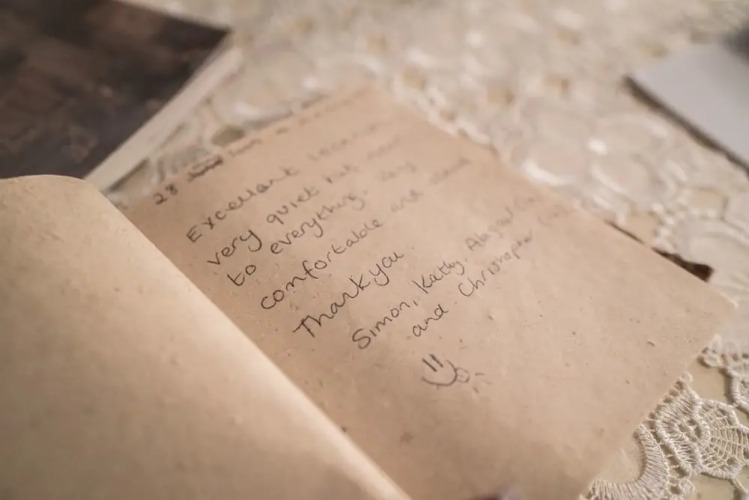 28
Excellent location
very quiet but near
to everything. Very
comfortable and
Thankyou.
Simon, Kathy, Abigail
and Christopher